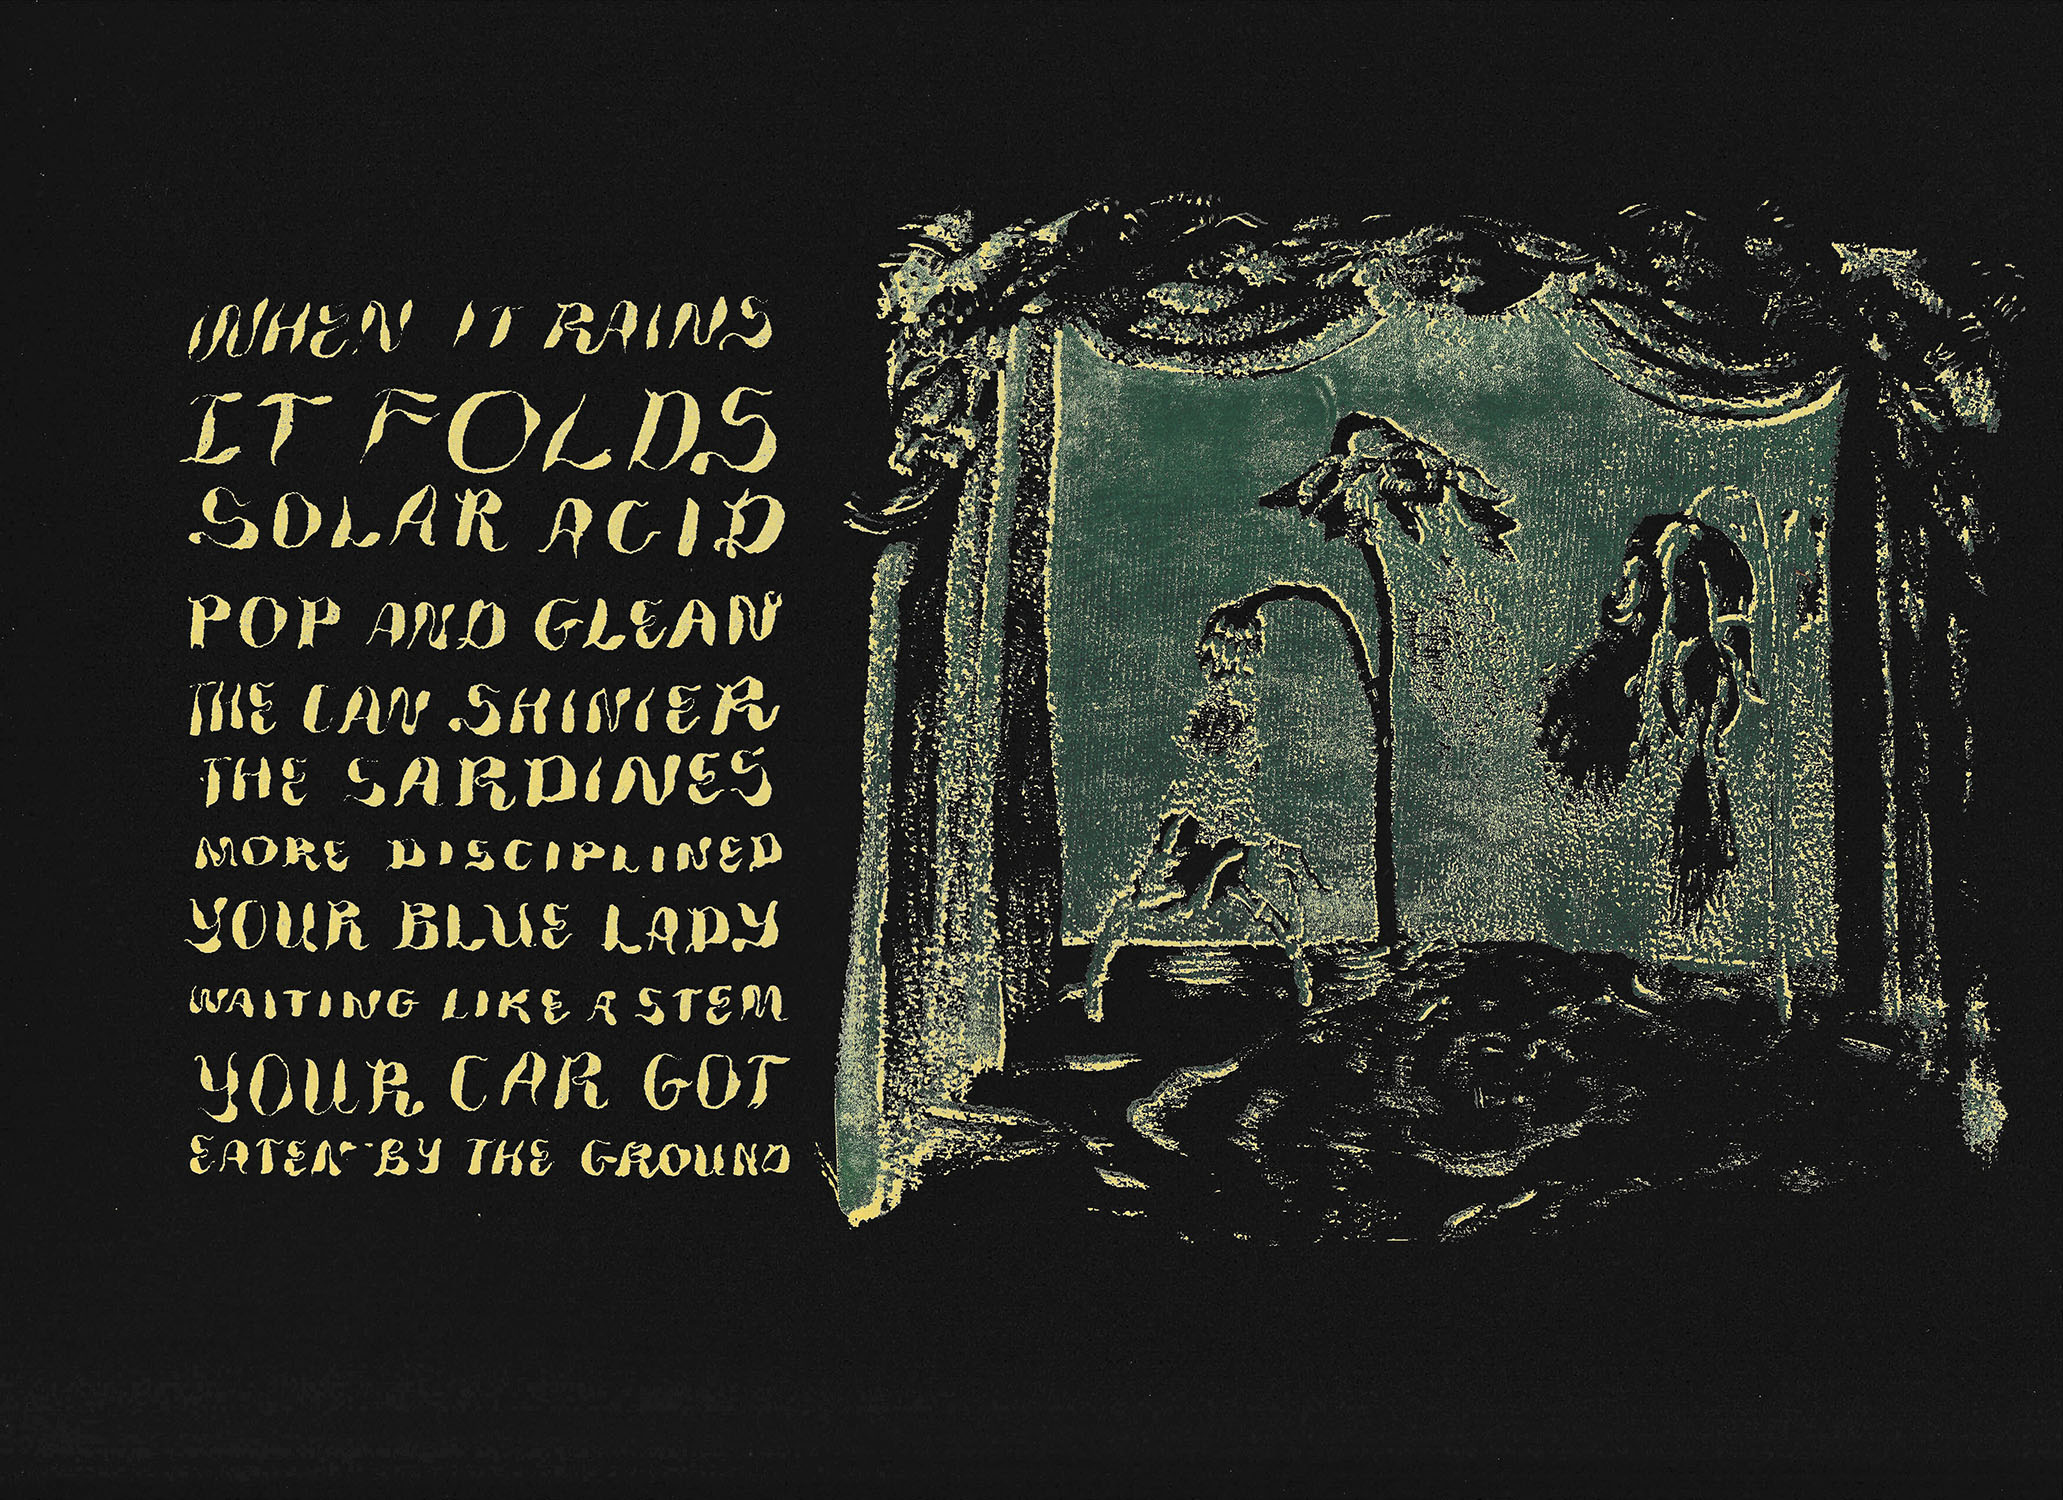 WHEN IT RAINS
IT FOLDS
SOLAR ACID
POP AND GLEAN
THE CAN SHINIER
THE SARDINES
MORE DISCIPLINED
YOUR BLUE LADY
WAITING LIKE A STEM
YOUR CAR GOT
EATEN BY THE GROUND